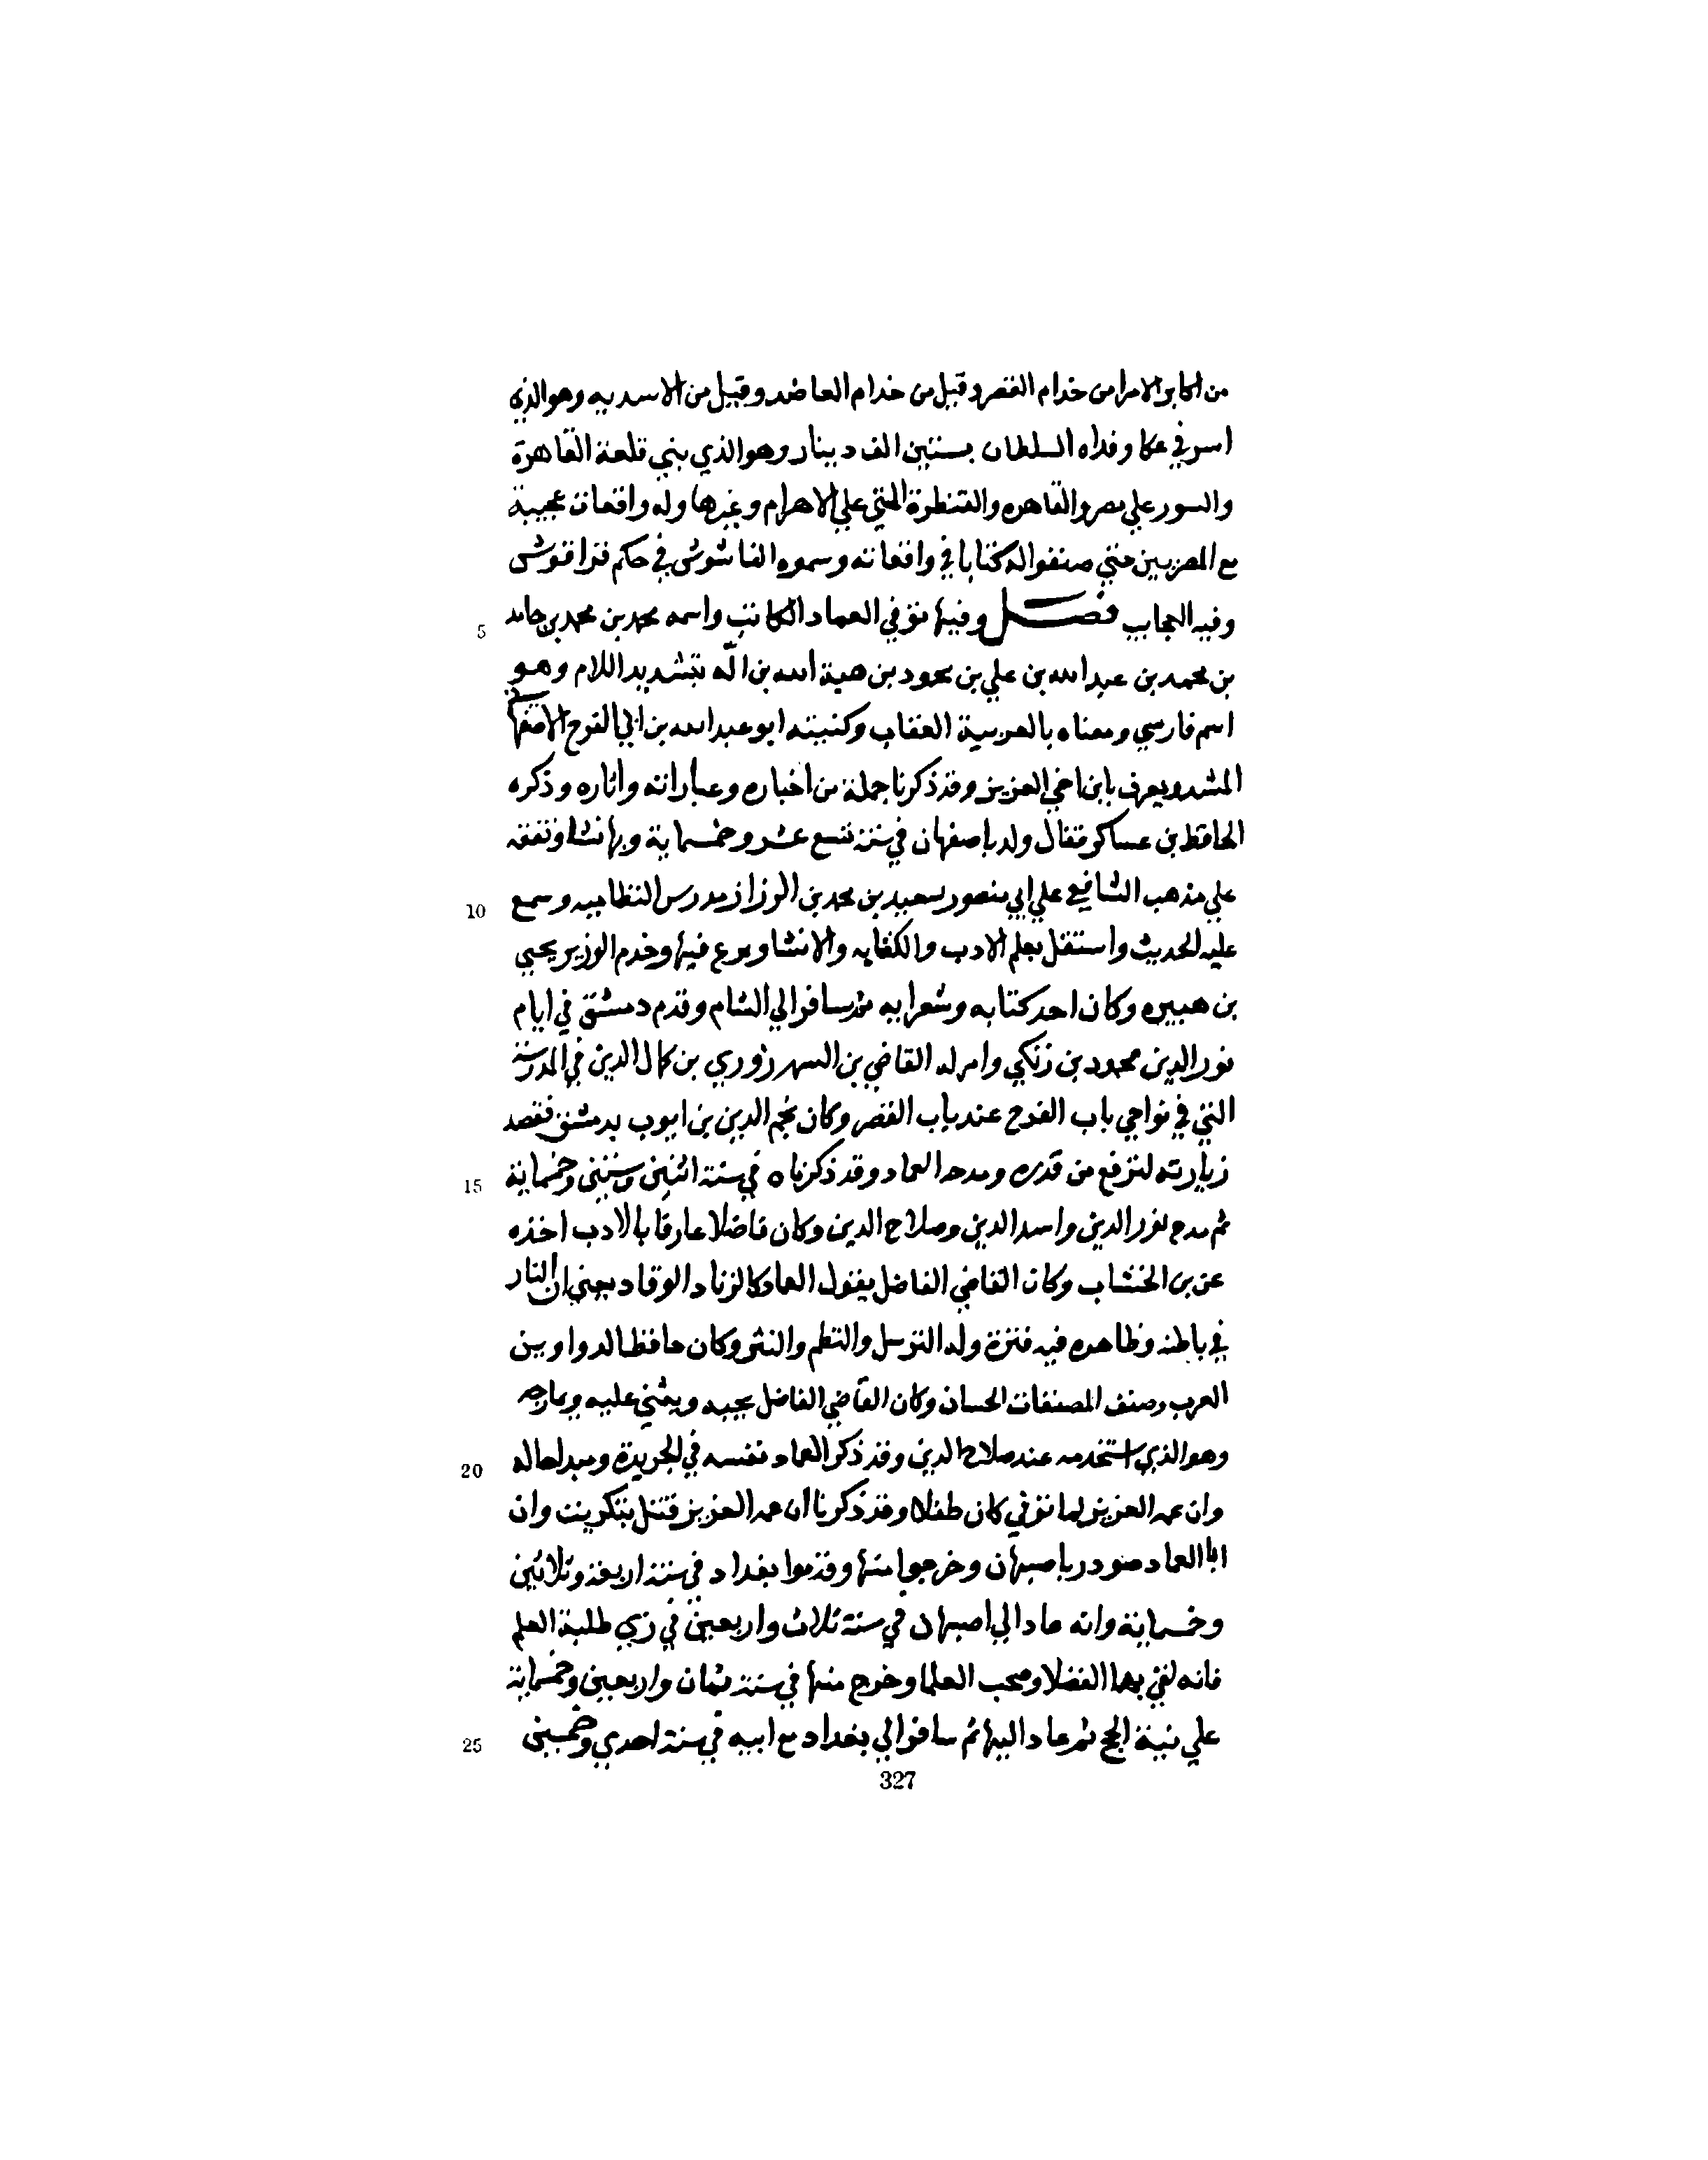 من اكابر الامرا من خدام القصر وقيل من خدام العاضد وقيل من الاسديه وهو الذي
اسر في عكا وفداه السلطان بستين الف دينار وهو الذي بني قلعة القاهرة
والسور علي مصر والقاهره والقنطرة التي علي الاهرام وغيرها وله واقعات عجيبة
مع المصريين حتي صنفوا له كتابا في واقعاته وسموه الفاشوش في حكم قراقوش
وفيه العجايب فصل وفيها توفي العماد الكاتب واسمه محمد بن محمد بن حامد
5
بن محمد بن عبد الله بن علي بن محمود بن هبة الله بن اله بتشديد اللام وهو
اسم فارسي ومعناه بالعربية العقاب وكنيته ابو عبد الله بن ابي الفرج الاصفهاني
المنشد ويعرف بابن اخي العزيز وقد ذكرنا جملة من اخباره وعباراته واثاره وذكره
الحافظ بن عساكر فقال ولد باصفهان في سنة تسع عشر وخمسماية وبها نشا وتفقه
علي مذهب الشافعي علي ابي منصور سعيد بن محمد بن الرزاز مدرس النظاميه وسمع
10
عليه الحديث واستقل بعلم الادب والكتابه والانشا وبرع فيها وخدم الوزير يحيي
بن هبيره وكان احد كتابه وشعرايه ثم سافر الي الشام وقدم دمشق في ايام
نور الدين محمود بن زنكي وامر له القاضي بن السهرزوري بن كمال الدين في المدرسة
التي في نواحي باب الفرج عند باب القصر وكان نجم الدين بن ايوب بدمشق فقصد
زيارته لترفع من قدره ومدحه العماد وقد ذكرناه في سنة اثنين وستين وخمسماية
15
ثم مدح نور الدين واسد الدين وصلاح الدين وكان فاضلا عارفا بالادب اخذه
عن بن الخشاب وكان القاضي الفاضل يقول العماد كالزناد الوقاد يعني ان النار
في باطنه وظاهره فيه فترة وله الترسل والنظم والنثر وكان حافظا لدواوين
العرب وصنف المصنفات الحسان وكان القاضي الفاضل يحبه ويثني عليه
وهو الذي استخدمه عند صلاح الدين وقد ذكر العماد نفسه في الجريدة ومبدا حاله
20
وان عمه العزيز لما توفي كان طفلا وقد ذكرنا ان عمه العزيز قتل بتكريت وان
ابا العماد صودر باصبهان وخرجوا منها وقدموا بغداد في سنة اربعة وثلاثين
وخمسماية وانه عاد الي اصبهان في سنة ثلاث واربعين في زي طلبة العلم
فانه لقي بها الفضلا وصحب العلما وخرج منها في سنة ثمان واربعين وخمسماية
علي نية الحج ثم عاد اليها ثم سافر الي بغداد مع ابيه في سنة احدي وخمسين
25
327